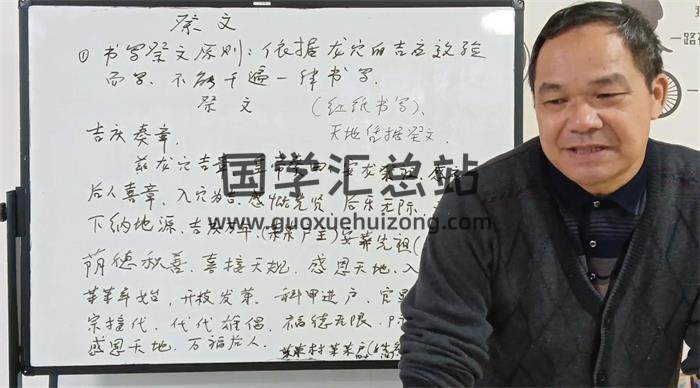 祭文
① 书写祭文原则:依据龙穴的吉应效验
而写.不能千遍一律书写.
祭文 (红纸书写).
吉庆奏章. 天地凭据祭文.
兹龙穴吉
后人喜章.入穴为吉.感 后乐无际.
下纳地源.吉庆万年.(某某户主)安葬先祖(
荫德秋善.喜接天规.感恩天地.入
某某年 .开枝发芽.科甲进户.官
宗接代.代代雄倡.福德无限.
感恩天地.万福后人. 某某村某某户
国学汇总站
www.guoxuehuizong.com
一路